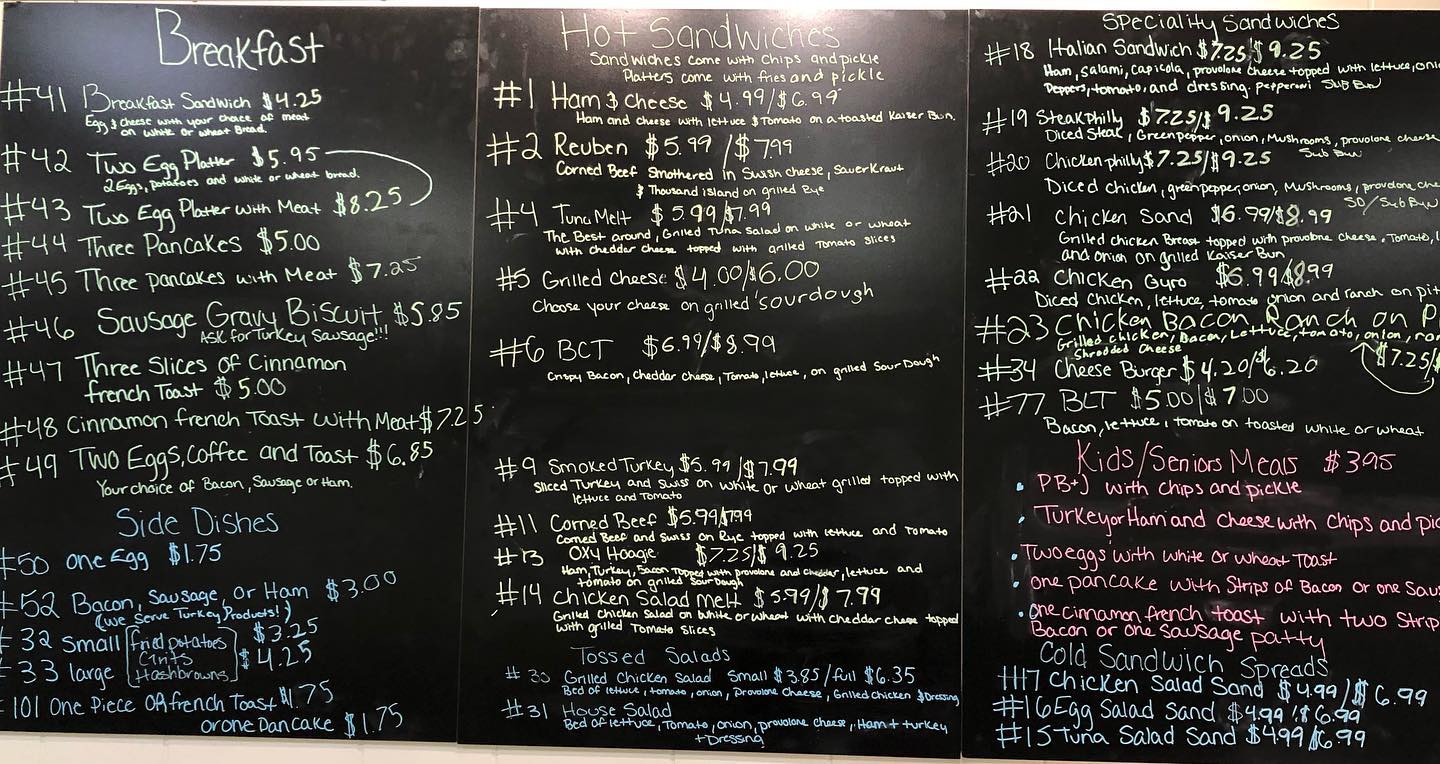 Breakfast
#41 Breakfast Sandwich $4.25
Egg & cheese with your choice of meat
on white or wheat Bread.
#42 Two Egg Platter $5.95
2 Eggs, potatoes and white or wheat bread.
#43 Two Egg Platter with Meat $8.25
#44 Three Pancakes $5.00
#45 Three pancakes with Meat $7.25
#46 Sausage Gravy Biscuit $5.85
ASK for Turkey Sausage!!!
#47 Three Slices of Cinnamon
french Toast $5.00
#48 Cinnamon french Toast with Meat $7.25
#49 Two Eggs, Coffee and Toast $6.85
Your choice of Bacon, Sausage or Ham.
Side Dishes
#50 one Egg $1.75
#52 Bacon, Sausage, Or Ham $3.00
(We serve Turkey Products!)
#32 Small fried potatoes $3.25
Grits
#33 large Hashbrowns $4.25
101 One Piece Of french Toast $1.75
or one Pancake $1.75
Hot Sandwiches
Sandwiches come with chips and pickle
Platters come with fries and pickle
#1 Ham & cheese $4.99/$6.99
Ham and cheese with lettuce & Tomato on a toasted Kaiser Bun.
#2 Reuben $5.99/$7.99
Corned Beef Smothered in Swish cheese, SauerKraut
& Thousand island on grilled Rye
#4 Tuna Melt $5.99/$7.99
The Best around, Grilled Tuna Salad on white or wheat
with cheddar cheese topped with grilled Tomato slices
#5 Grilled Cheese $4.00/$6.00
Choose your cheese on grilled sourdough
#6 BCT $6.99/$8.99
Crispy Bacon, Cheddar Cheese, Tomato, lettuce, on grilled Sour Dough
#9 Smoked Turkey $5.99/$7.99
Sliced Turkey and Swiss on white or wheat grilled topped with
lettuce and Tomato
#11 Corned Beef $5.99/$7.99
Corned Beef and Swiss on Rye topped with lettuce and Tomato
#13 Oxy Hoagie $7.25/$9.25
Ham, Turkey, Bacon Topped with provolone and cheddar, lettuce and
tomato on grilled Sour Dough
#14 Chicken Salad Melt $5.99/$7.99
Grilled Chicken Salad on White or Wheat with cheddar cheese topped
with grilled Tomato slices
Tossed Salads
#30 Grilled Chicken Salad Small $3.85/full $6.35
Bed of lettuce, tomato, onion, Provolone Cheese, Grilled Chicken & Dressing
#31 House Salad
Bed of lettuce, Tomato, onion, provolone cheese, Ham + turkey
+ Dressing
Speciality Sandwiches
#18 Italian Sandwich $7.25/$9.25
Ham, Salami, Capicola, provolone cheese topped with lettuce,
Peppers, tomato, and dressing, pepperoni Sub Bun
#19 Steak Philly $7.25/$9.25
Diced Steak, Greenpepper, onion, Mushrooms, provolone cheese
Sub Bun
#20 Chicken philly $7.25/$9.25
Diced chicken, greenpepper, onion, Mushrooms, provolone
Sub Bun
#21 Chicken Sand $6.99/$8.99
Grilled chicken Breast topped with provolone cheese, Tomato,
and onion on grilled Kaiser Bun
#22 Chicken Gyro $6.99/$8.99
Diced Chicken, lettuce, tomato onion and ranch on
#23 Chicken Bacon Ranch on
Grilled chicken, Bacon, Lettuce, tomato, onion,
Shredded Cheese $7.25/
#34 Cheese Burger $4.20/$6.20
#77 BLT $5.00/$7.00
Bacon, lettuce, tomato on toasted white or wheat
Kids/Seniors Meals $3.95
• PB+J with chips and pickle
• Turkey or Ham and cheese with chips and
• Two eggs with white or wheat Toast
• one pancake with Strips of Bacon or one
• one cinnamon french toast with two
Bacon or one sausage patty
Cold Sandwich Spreads
#17 Chicken Salad Sand $4.99/$6.99
#16 Egg Salad Sand $4.99/$6.99
#15 Tuna Salad Sand $4.99/$6.99